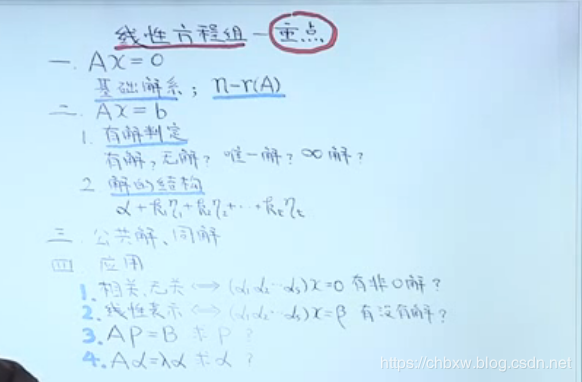 线性方程组 - 重点
一. AX = 0
基础解系; n-r(A)
二. AX = b
1. 有解判定
有解, 无解? 唯一解? ∞解?
2 解的结构
α + k₁η₁ + k₂η₂ + ⋯ + kₜηₜ
三. 公共解、同解
四 应用
1. 相关, 无关 ⟺ (α₁ α₂ ⋯ αₛ)x = 0 有非0解?
2. 线性表示 ⟺ (α₁ α₂ ⋯ αₛ)x = β 有没有解?
3. AP = B 求P?
4. Aα = λα 求α?
https://chbxw.blog.csdn.net